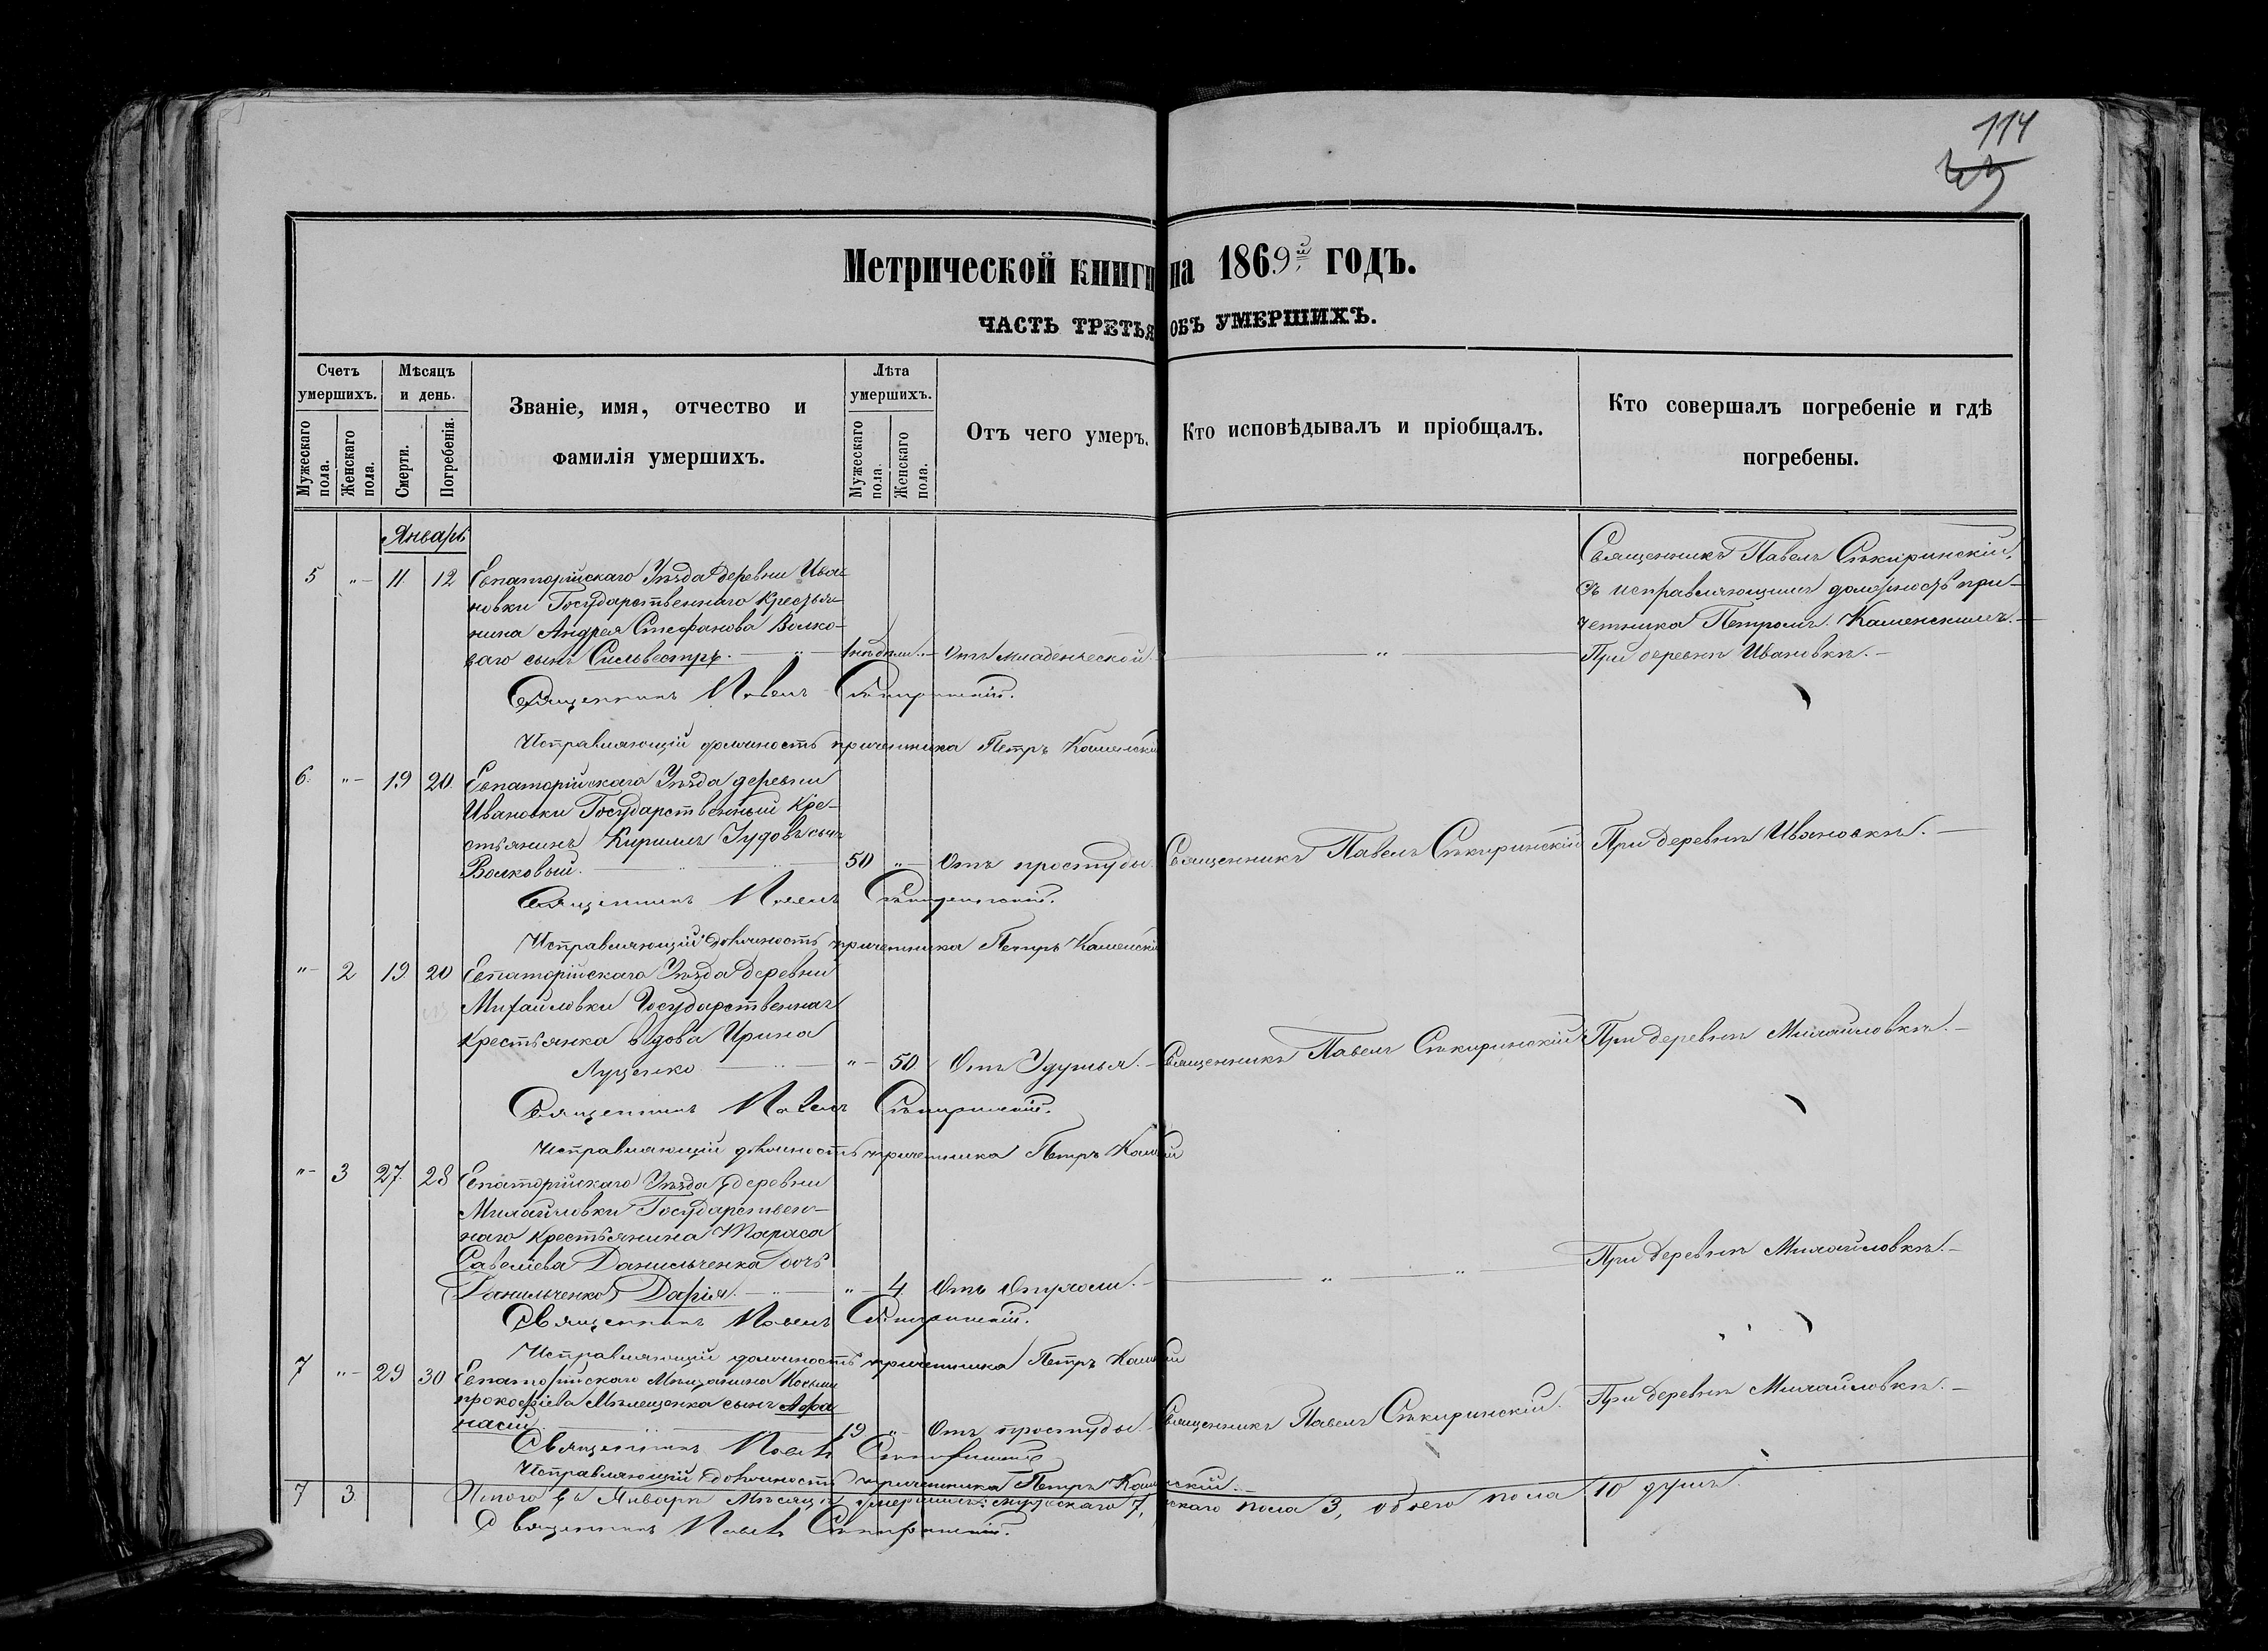 114
Метрической книги на 1869й годъ.
ЧАСТЬ ТРЕТЬЯ ОБЪ УМЕРШИХЪ.
Счетъ умершихъ.
Мужескаго пола.
Женскаго пола.
Мѣсяцъ и день.
Смерти.
Погребенія.
Званіе, имя, отчество и
фамилія умершихъ.
Лѣта умершихъ.
Мужескаго пола.
Женскаго пола.
Отъ чего умеръ.
Кто исповѣдывалъ и пріобщалъ.
Кто совершалъ погребеніе и гдѣ
погребены.
Январь
Священникъ Павелъ Сѣкиринскій,
5 "- 11 12 Евпаторійскаго Уѣзда деревни Ива-
съ исправляющимъ должность при-
новки Государственнаго Крестья-
четника Петромъ Каменскимъ.-
нина Андрея Стефанова Волко-
ваго сынъ Сильвестръ. - " - 1 недѣли "- Отъ младенческой. - " - При деревнѣ Ивановкѣ.-
Священникъ Павелъ Сѣкиринскій.
Исправляющій должность причетника Петръ Каменскій
6. "- 19 20 Евпаторійскаго Уѣзда деревни
Ивановки Государственный Кре-
стьянинъ Кириллъ Іудовъ сынъ
Волковый. - " - 50 "- Отъ простуды. Священникъ Павелъ Сѣкиринскій При деревнѣ Ивановкѣ.-
Священникъ Павелъ Сѣкиринскій.
Исправляющій должность причетника Петръ Каменскій
"- 2 19 20 Евпаторійскаго Уѣзда деревни
Михайловки Государственная
Крестьянка вдова Ирина
Луценко - " - "- 50 Отъ Удушья.- Священникъ Павелъ Сѣкиринскій При деревнѣ Михайловкѣ.-
Священникъ Павелъ Сѣкиринскій.
Исправляющій должность причетника Петръ Камен
"- 3 27 28 Евпаторійскаго Уѣзда деревни
Михайловки Государствен-
наго крестьянина Тараса
Савеліева Данильченка дочь
Данильченко Дарія. - " - "- 4 Отъ Опухоли.- - " - " - При деревнѣ Михайловкѣ.-
Священникъ Павелъ Сѣкиринскій.
Исправляющій должность причетника Петръ Камен
7 "- 29 30 Евпаторійскаго Мѣщанина Косьмы
Прокофіева сынъ Афа-
насій 19 "- Отъ простуды. Священникъ Павелъ Сѣкиринскій. При деревнѣ Михайловкѣ.-
Священникъ Павелъ Сѣкиринскій
Исправляющій должность причетника Петръ Каменскій.-
7 3 Итого въ Январѣ Мѣсяцѣ умершихъ: мужескаго 7, скаго пола 3, обоего пола 10 душъ.
Священникъ Павелъ Сѣкиринскій.